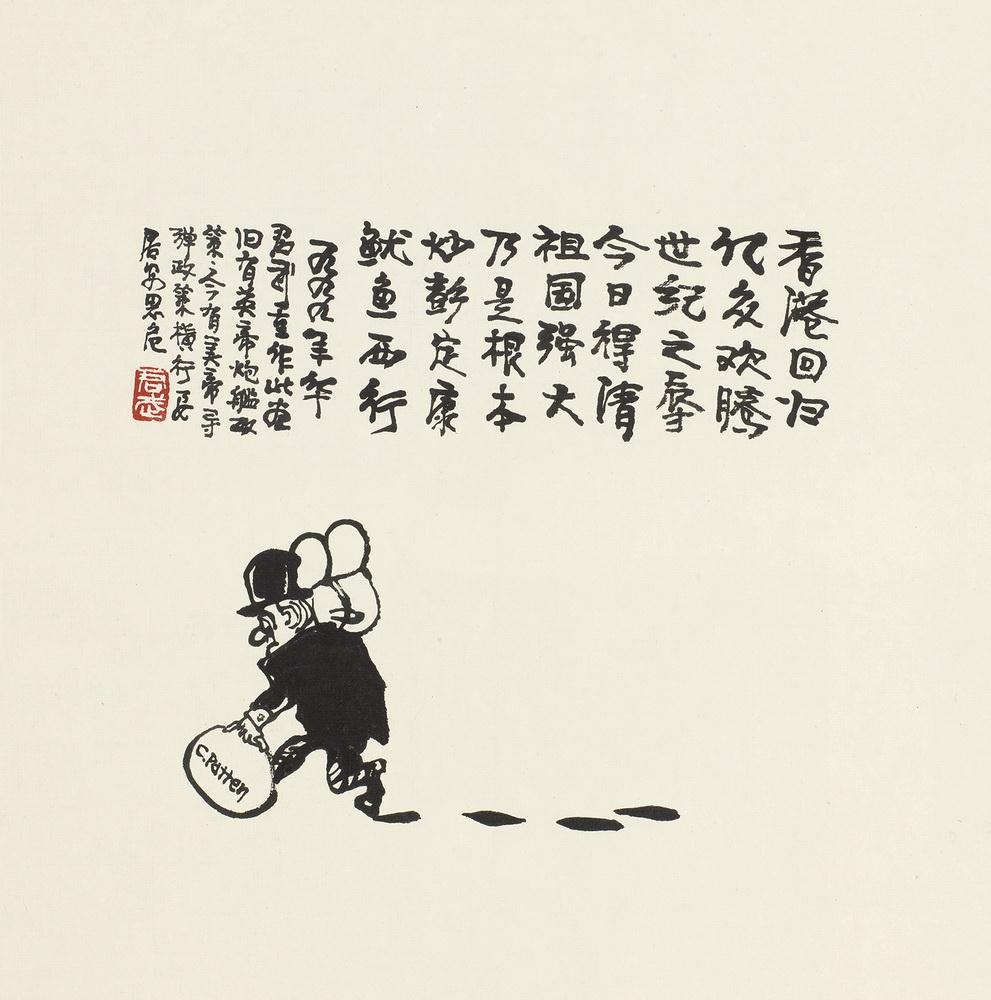 香港回归
亿众欢腾
世纪之辱
今日得清
祖国强大
乃是根本
炒彭定康
鱿鱼西行
一九九九年华
君武重作此画
旧有英帝炮舰政
策今有美帝导
弹政策横行要
居安思危
君武
C.Patten